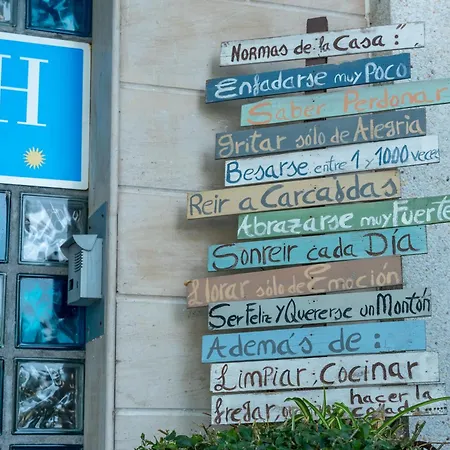 H
"Normas de la Casa:"
Enfadarse muy Poco
Saber Perdonar
Gritar sólo de Alegría
Besarse entre 1 y 1000 veces
Reir a Carcajadas
Abrazarse muy Fuerte
Sonreir cada Día
Llorar sólo de Emoción
Ser Feliz y Quererse un Montón
Además de:
Limpiar, Cocinar
fregar, hacer la colada...